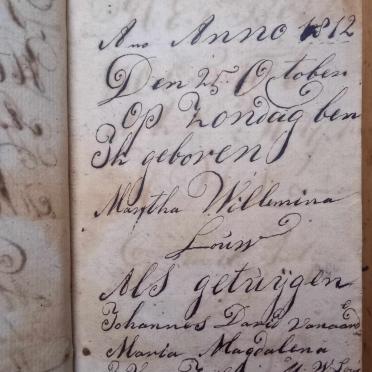 Ano Anno 1812
Den 25 October
Op Zondag ben
Ik geboren
Martha Willemina
Louw
Als getuijgen
Johannes David vanaarde
Maria Magdalena